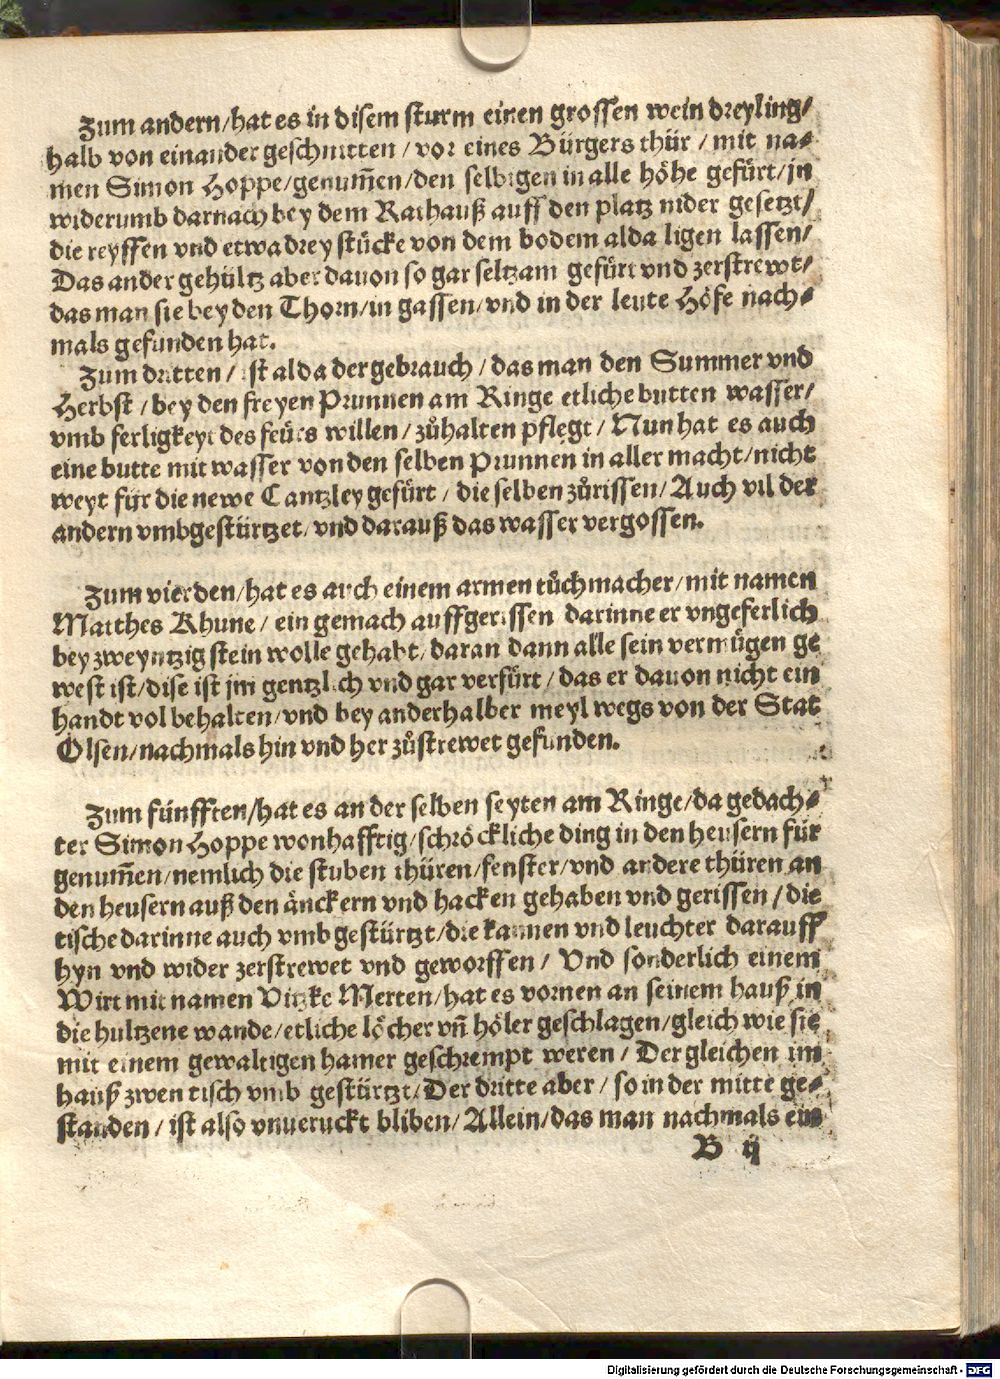 Zum andern/hat es in disem sturm einen grossen wein dreyling/
halb von einander geschnitten/vor eines Bürgers thür/mit na⸗
men Simon Hoppe/genum̃en/den selbigen in alle höhe gefürt/jn
widerumb darnach bey dem Rathauß auff den platz nider gesetzt/
die reyffen vnd etwa drey stücke von dem bodem alda ligen lassen/
Das ander gehültz aber dauon so gar seltzam gefürt vnd zerstrewt/
das man sie bey den Thorn/in gassen/vnd in der leute Höfe nach⸗
mals gefunden hat.
Zum dritten/ist alda der gebrauch/das man den Summer vnd
Herbst/bey den freyen Prunnen am Ringe etliche butten wasser/
vmb ferligkeyt des feürs willen/zůhalten pflegt/Nun hat es auch
eine butte mit wasser von den selben Prunnen in aller macht/nicht
weyt für die newe Cantzley gefürt/die selben zůrissen/Auch vil der
andern vmbgestürtzet/vnd darauß das wasser vergossen.
Zum vierden/hat es auch einem armen tůchmacher/mit namen
Matthes Khune/ein gemach auffgerissen darinne er vngeferlich
bey zweyntzig stein wolle gehabt/daran dann alle sein vermügen ge
west ist/dise ist jm gentzlich vnd gar verfürt/das er dauon nicht ein
handt vol behalten/vnd bey anderhalber meyl wegs von der Stat
Olsen/nachmals hin vnd her zůstrewet gefunden.
Zum fünfften/hat es an der selben seyten am Ringe/da gedach⸗
ter Simon Hoppe wonhafftig/schröckliche ding in den heusern für
genum̃en/nemlich die stuben thüren/fenster/vnd andere thüren an
den heusern auß den änckern vnd hacken gehaben vnd gerissen/die
tische darinne auch vmbgestürtzt/die kannen vnd leuchter darauff
hyn vnd wider zerstrewet vnd geworffen/Vnd sonderlich einem
Wirt mit namen Vitzke Merten/hat es vornen an seinem hauß in
die hultzene wande/etliche löcher vñ höler geschlagen/gleich wie sie
mit einem gewaltigen hamer geschrempt weren/Der gleichen im
hauß zwen tisch vmb gestürtzt/Der dritte aber/so in der mitte ge⸗
standen/ist also vnueruckt bliben/Allein/das man nachmals ein
B ij
Digitalisierung gefördert durch die Deutsche Forschungsgemeinschaft - DFG